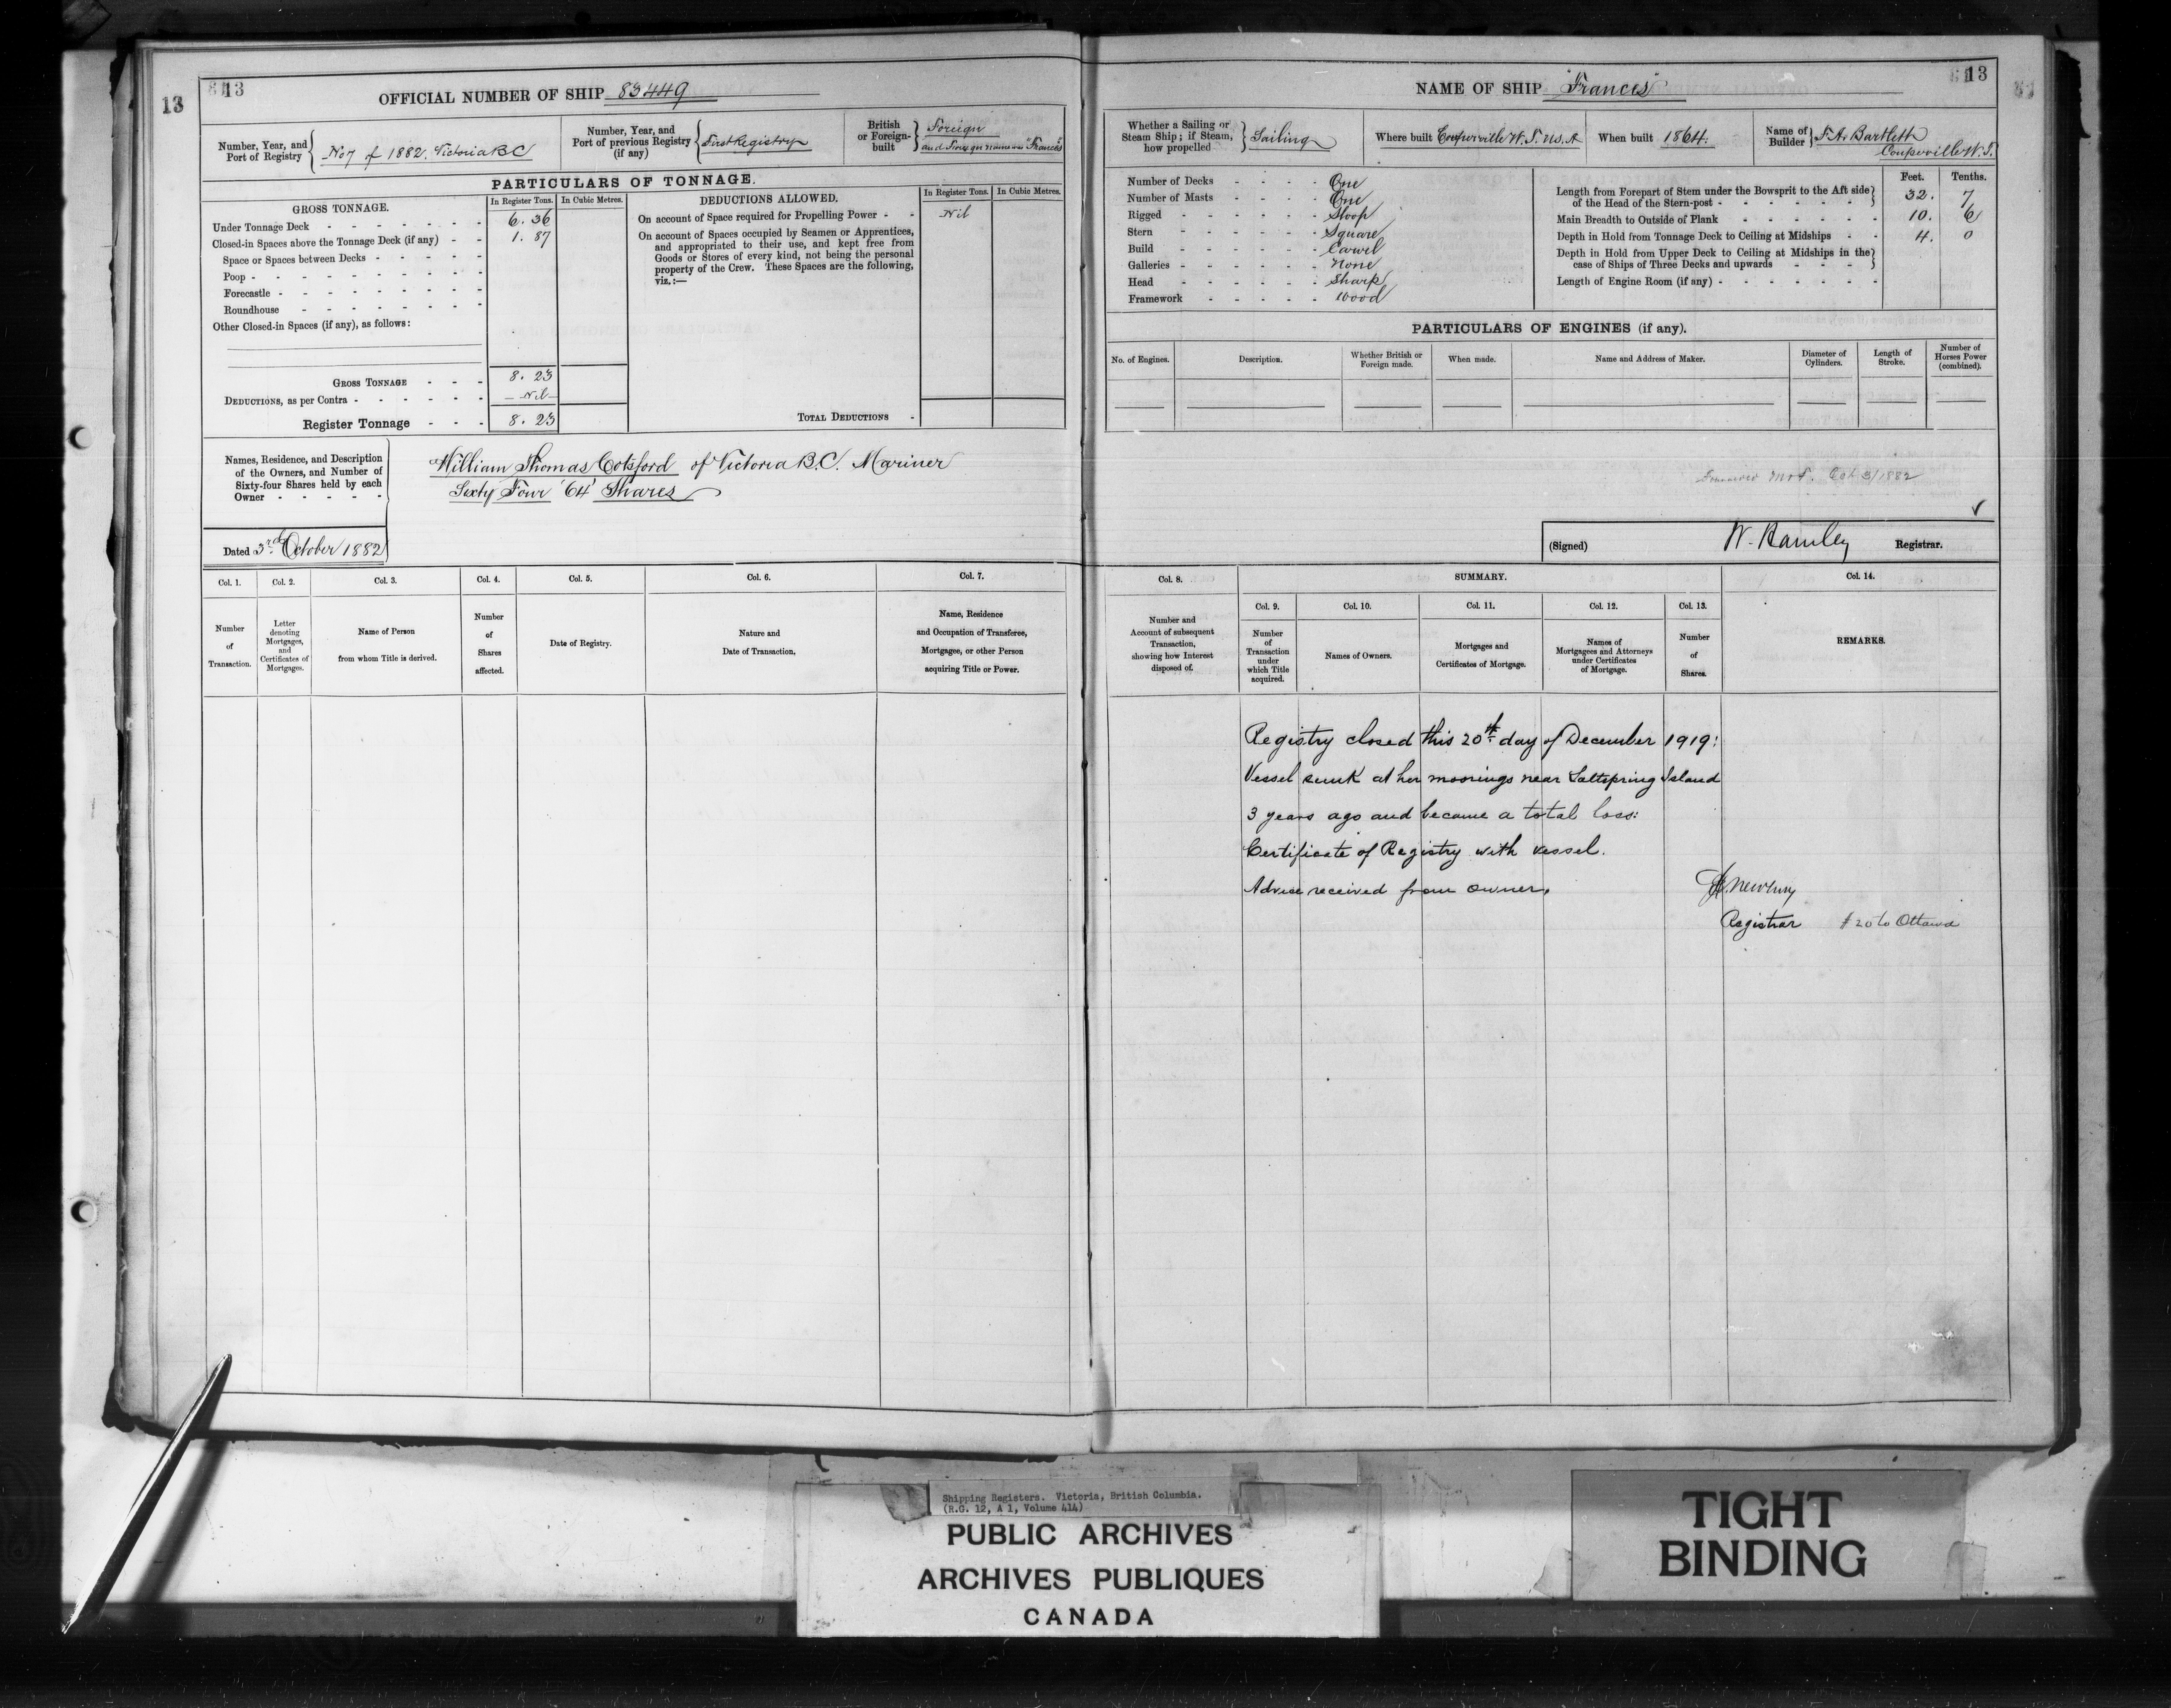 13
13
OFFICIAL NUMBER OF SHIP 83449
Number, Year, and Port of Registry { No 7 of 1882. Victoria BC
Number, Year, and Port of previous Registry (if any) { First Registry
British or Foreign-built } Foreign and Foreign name was "Frances"
PARTICULARS OF TONNAGE.
GROSS TONNAGE.
In Register Tons.
In Cubic Metres.
Under Tonnage Deck - 6. 36
Closed-in Spaces above the Tonnage Deck (if any) - 1. 87
Space or Spaces between Decks -
Poop -
Forecastle -
Roundhouse -
Other Closed-in Spaces (if any), as follows:
GROSS TONNAGE - 8. 23
DEDUCTIONS, as per Contra - Nil
Register Tonnage - 8. 23
DEDUCTIONS ALLOWED.
In Register Tons.
In Cubic Metres.
On account of Space required for Propelling Power - Nil
On account of Spaces occupied by Seamen or Apprentices,
and appropriated to their use, and kept free from
Goods or Stores of every kind, not being the personal
property of the Crew. These Spaces are the following,
viz.:—
TOTAL DEDUCTIONS -
Names, Residence, and Description
of the Owners, and Number of
Sixty-four Shares held by each
Owner -
William Thomas Cotsford of Victoria B.C. Mariner
Sixty Four '64' Shares
Dated 3rd October 1882
Col. 1.
Number of Transaction.
Col. 2.
Letter denoting Mortgages, and Certificates of Mortgages.
Col. 3.
Name of Person from whom Title is derived.
Col. 4.
Number of Shares affected.
Col. 5.
Date of Registry.
Col. 6.
Nature and Date of Transaction.
Col. 7.
Name, Residence and Occupation of Transferee, Mortgagee, or other Person acquiring Title or Power.
13
NAME OF SHIP "Frances"
Whether a Sailing or Steam Ship; if Steam, how propelled } Sailing
Where built Coupeville W.T. U.S.A
When built 1864.
Name of Builder } F. A. Bartlett Coupeville W.T.
Number of Decks - One
Number of Masts - One
Rigged - Sloop
Stern - Square
Build - Carvel
Galleries - None
Head - Sharp
Framework - Wood
Feet.
Tenths.
Length from Forepart of Stem under the Bowsprit to the Aft side of the Head of the Stern-post - 32. 7
Main Breadth to Outside of Plank - 10. 6
Depth in Hold from Tonnage Deck to Ceiling at Midships - 4. 0
Depth in Hold from Upper Deck to Ceiling at Midships in the case of Ships of Three Decks and upwards -
Length of Engine Room (if any) -
PARTICULARS OF ENGINES (if any).
No. of Engines.
Description.
Whether British or Foreign made.
When made.
Name and Address of Maker.
Diameter of Cylinders.
Length of Stroke.
Number of Horses Power (combined).
Oct 3/1882
(Signed) W. Hamley Registrar.
Col. 8.
Number and Account of subsequent Transaction, showing how Interest disposed of.
SUMMARY.
Col. 9.
Number of Transaction under which Title acquired.
Col. 10.
Names of Owners.
Col. 11.
Mortgages and Certificates of Mortgage.
Col. 12.
Names of Mortgagees and Attorneys under Certificates of Mortgage.
Col. 13.
Number of Shares.
Col. 14.
REMARKS.
Registry closed this 20th day of December 1919:
Vessel sunk at her moorings near Saltspring Island
3 years ago and became a total loss:
Certificate of Registry with vessel.
Advice received from owner.
Newbury
Registrar
# 20 to Ottawa
Shipping Registers. Victoria, British Columbia.
(R.G. 12, A 1, Volume 414)
PUBLIC ARCHIVES
ARCHIVES PUBLIQUES
CANADA
TIGHT
BINDING